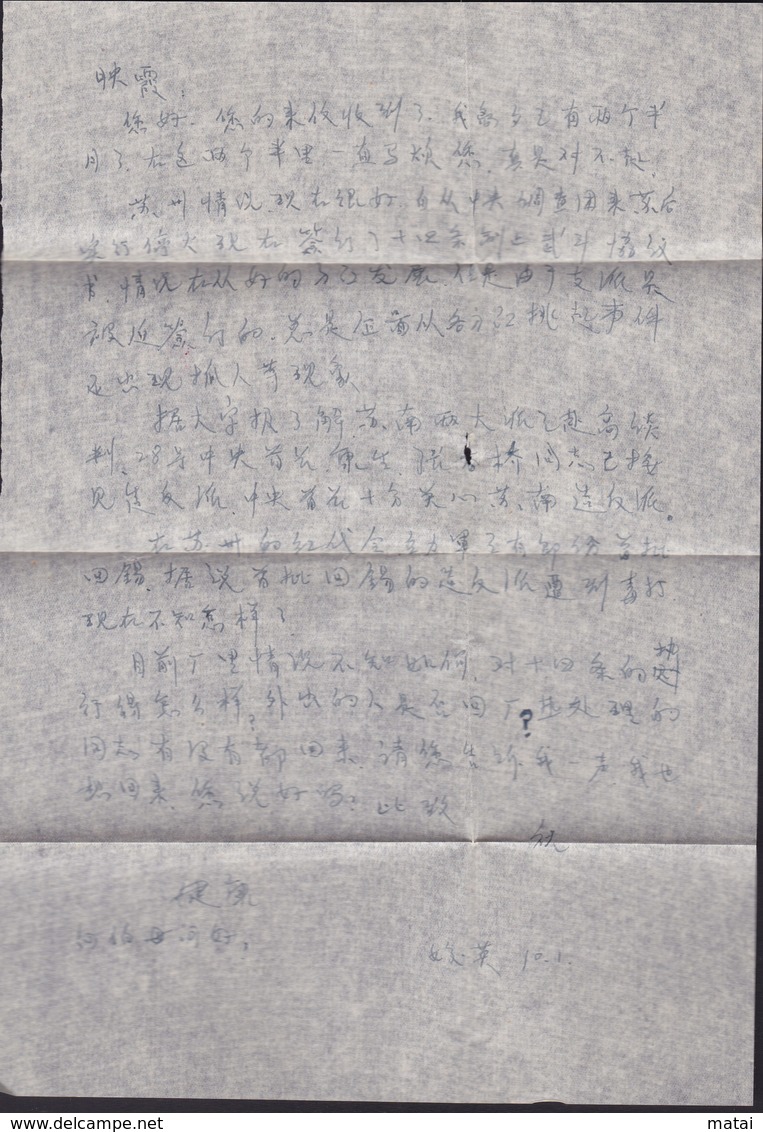 映霞：
您好．您的来信收到了．我离乡已有两个半
月了．在这两个半里一直马烦您，真是对不起，
苏州情况，现在很好，自从中央调查团来苏后
实行停火现在签订了十四条制止武斗协议
书，情况在从好的方向发展，但是由于支派是
被迫签订的．总是企图从各方面挑起事件
还出现抓人等现象
据大字报了解，苏南两大派已赴京谈
判，28号中央首长，康生，张春桥同志已接
见造反派，中央首长十分关心苏南造反派。
在苏州的红代会 军已有部份首批
回锡，据说首批回锡的造反派遭到毒打．
现在不知怎样了
目前厂里情况不知如何，对十四条的执
行得怎么样，外出的人是否回厂 处理的
同志有没有都回来，请您告诉我一声，我也
想回来，您说好吗？此致
祝
健康
伯母问好，
英 10.1.
matai